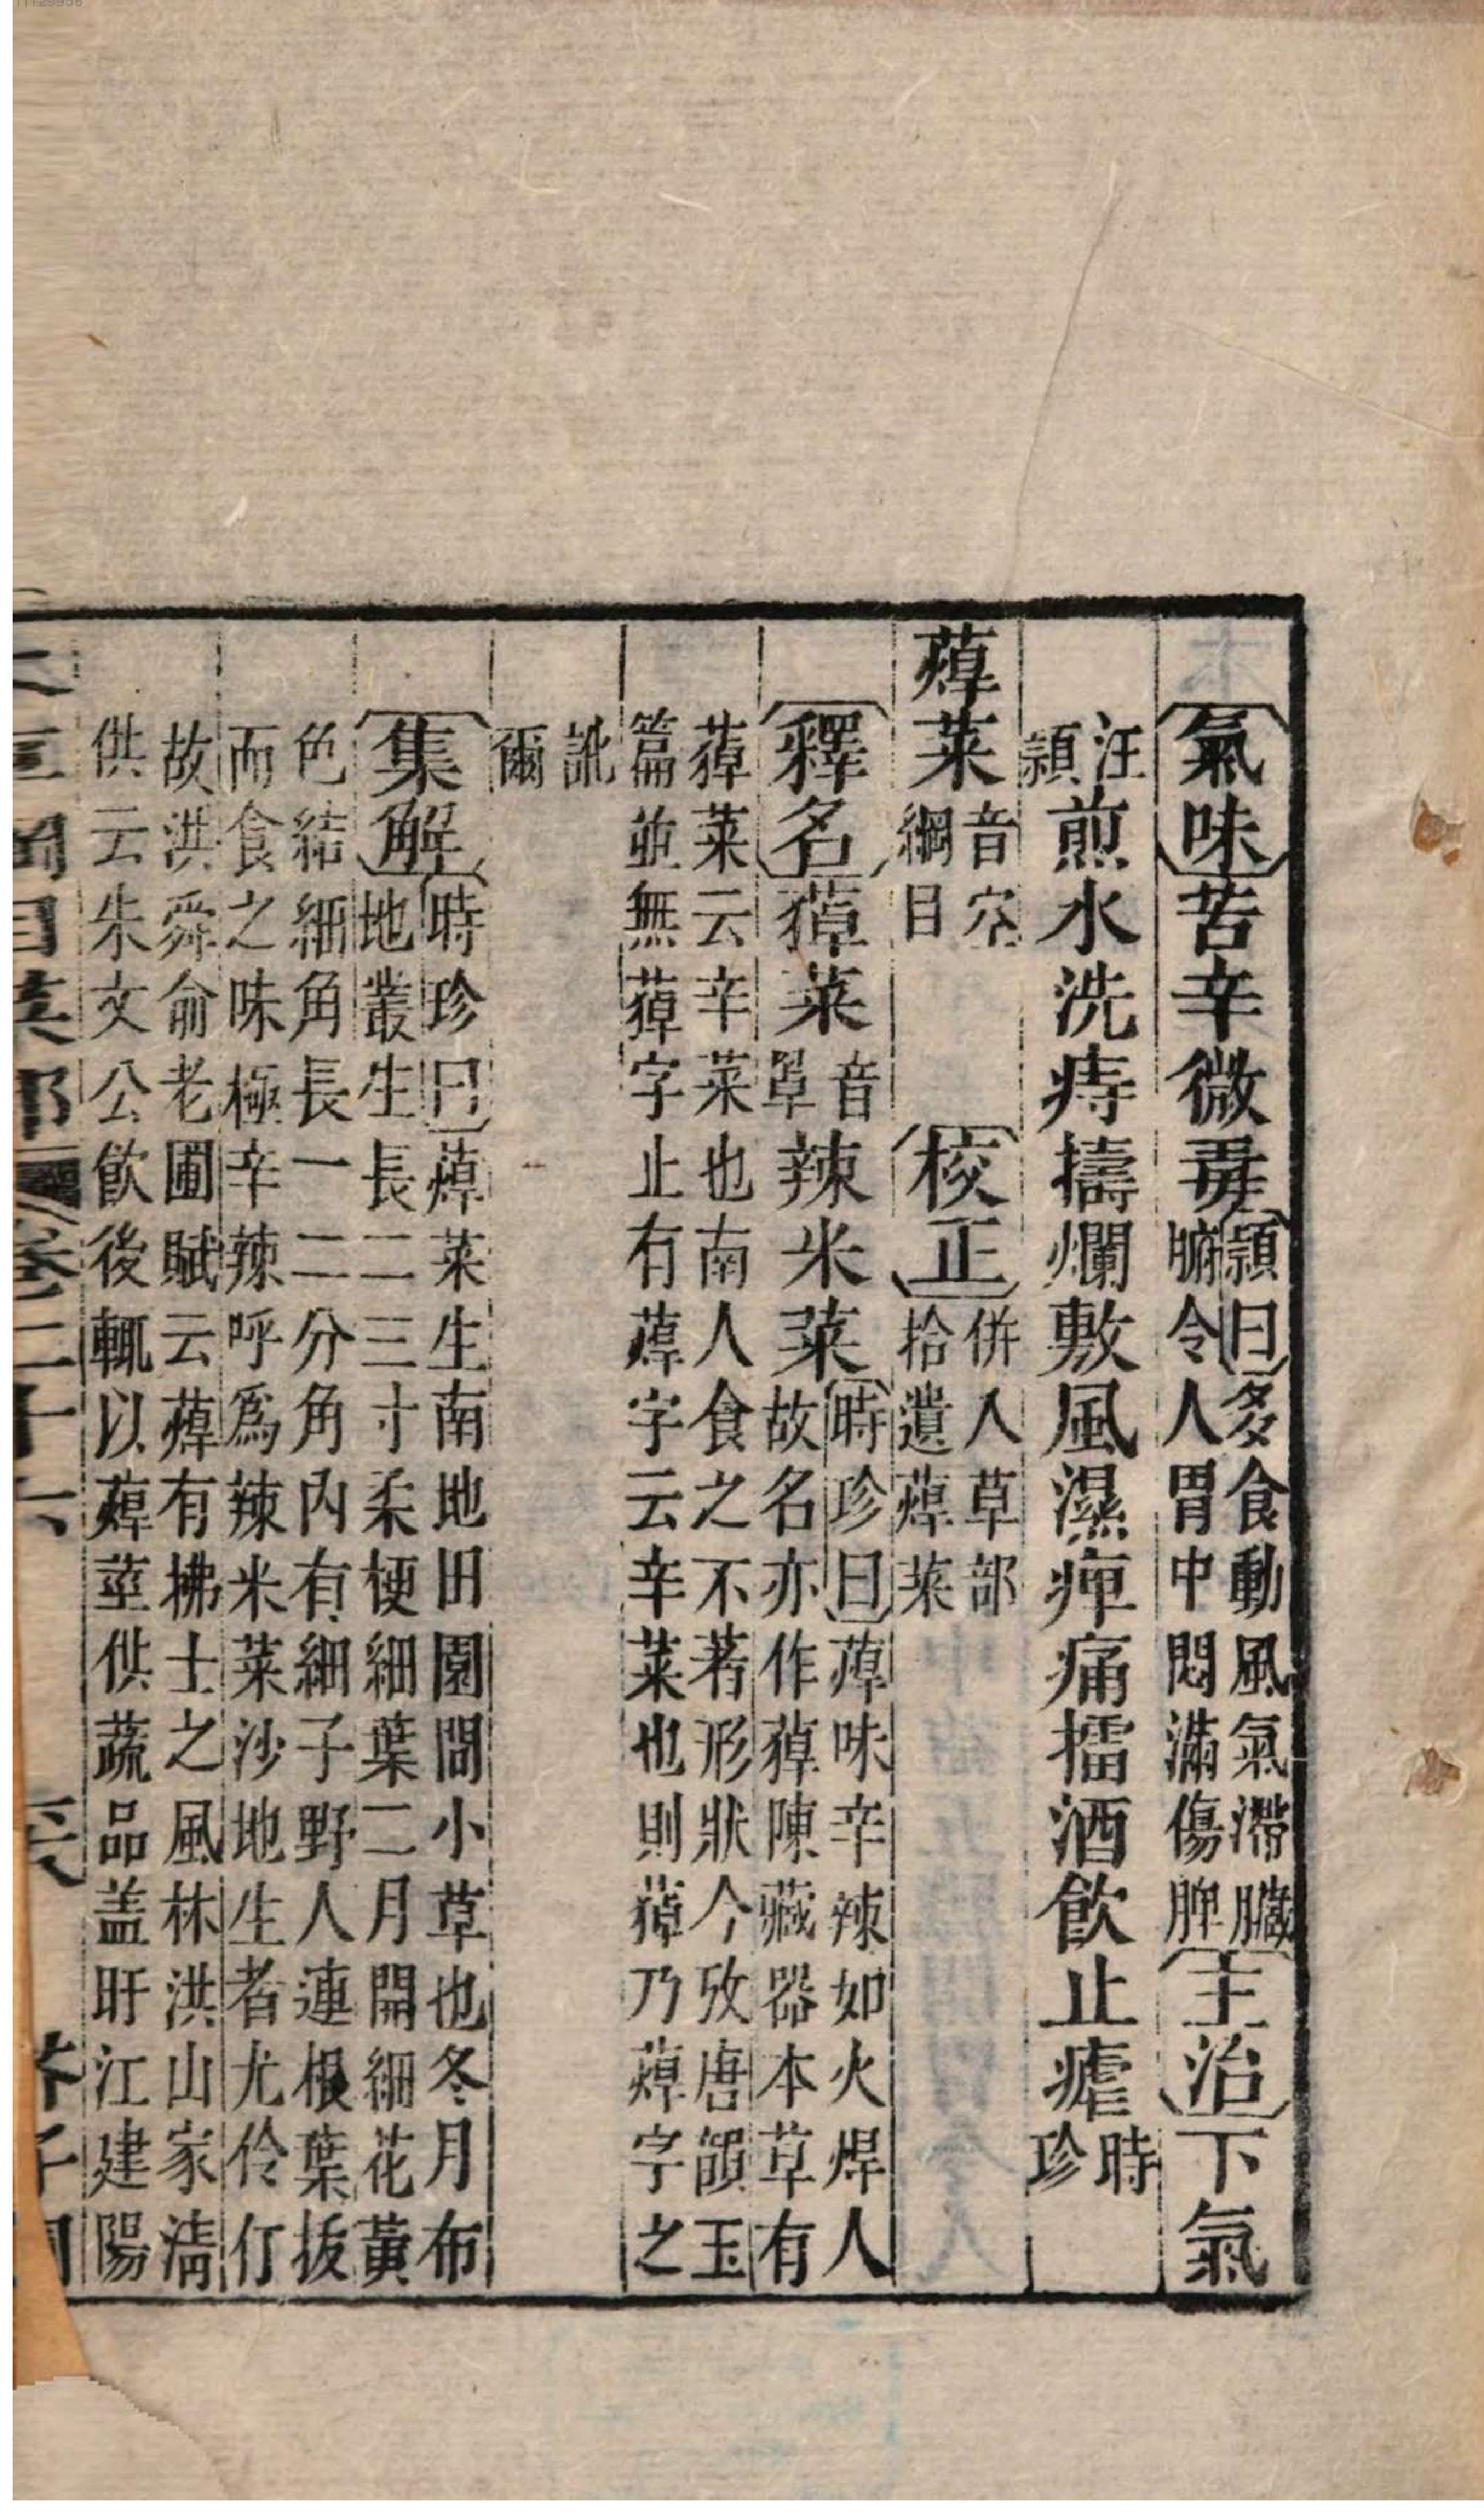 氣味苦辛微毒頴曰多食動風氣滯臟腑令人胃中悶滿傷脾主治下氣
煎水洗痔擣爛敷風濕痺痛擂酒飲止瘧時珍
汪頴
蔊菜音罕綱目 校正併入草部拾遺蔊菜
釋名𦽉菜音罩辣米菜時珍曰蔊味辛辣如火焊人故名亦作𦽉陳藏器本草有
𦽉菜云辛菜也南人食之不著形狀今攷唐韻玉
篇並無𦽉字止有蔊字云辛菜也則𦽉乃蔊字之
訛
爾
集解時珍曰蔊菜生南地田園間小草也冬月布
地叢生長二三寸柔梗細葉二月開細花黃
色結細角長一二分角內有細子野人連根葉拔
而食之味極辛辣呼爲辣米菜沙地生者尤伶仃
故洪舜俞老圃賦云蔊有拂士之風林洪山家淸
供云朱文公飲後輒以蔊莖供蔬品盖盱江建陽